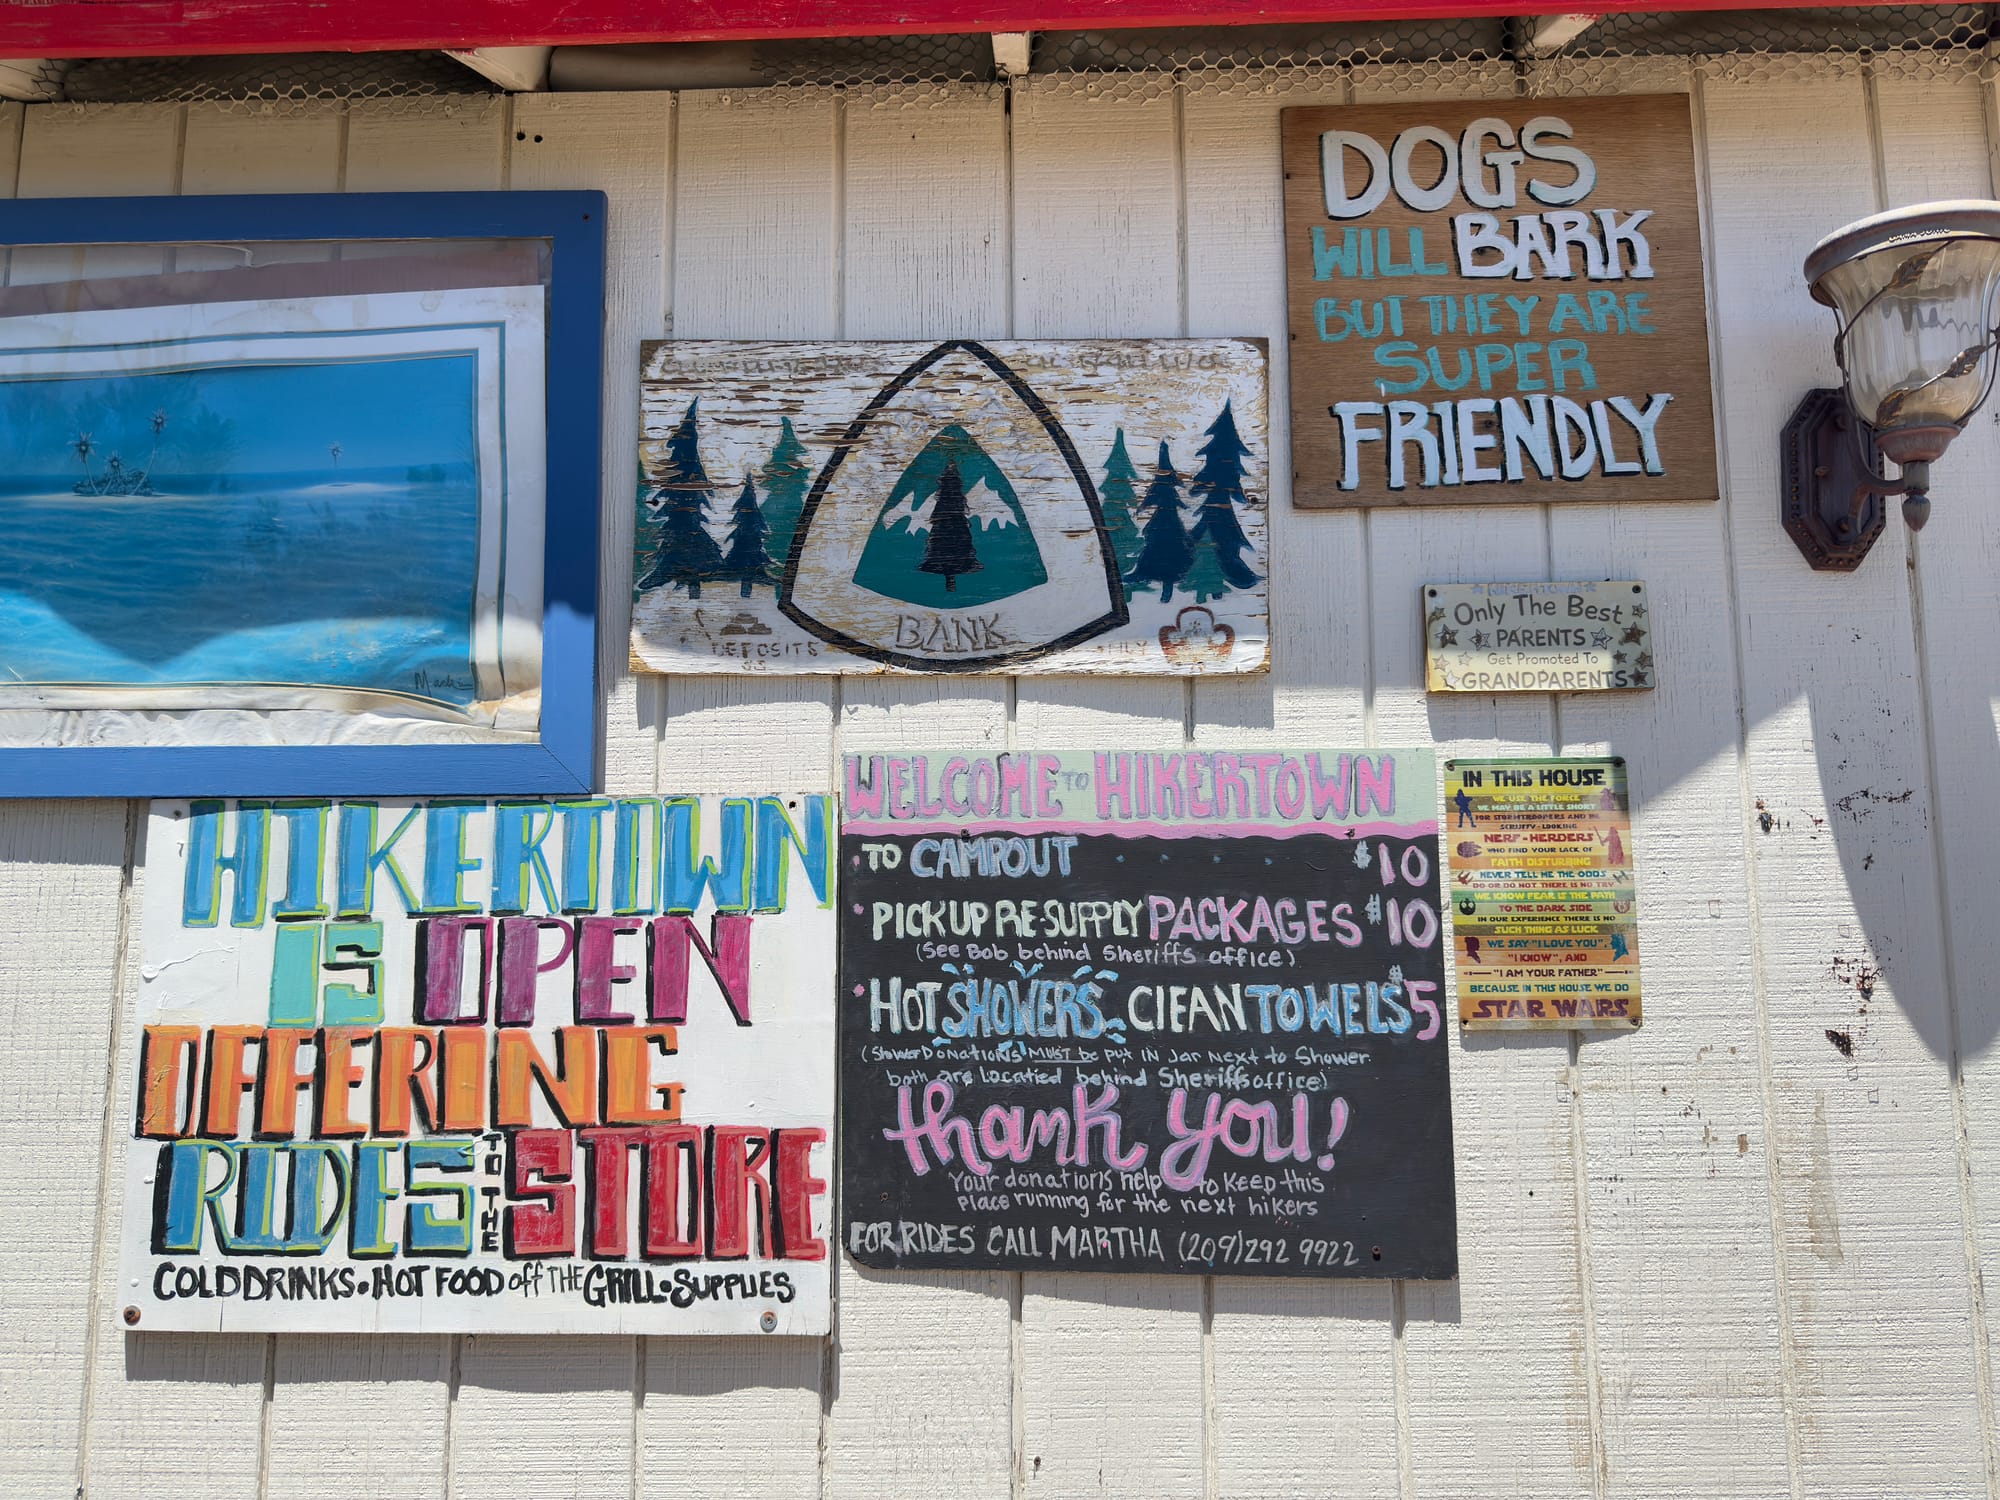 DOGS
WILL BARK
BUT THEY ARE
SUPER
FRIENDLY
BANK
DEPOSITS
Only The Best
PARENTS
Get Promoted To
GRANDPARENTS
HIKERTOWN
IS OPEN
OFFERING
RIDES TO THE STORE
COLD DRINKS • HOT FOOD off THE GRILL • SUPPLIES
WELCOME TO HIKERTOWN
• TO CAMPOUT . . . . $10
• PICKUP RESUPPLY PACKAGES $10
(See Bob behind Sheriffs office)
• HOT SHOWERS CLEAN TOWELS $5
(Shower Donations MUST be put IN Jar Next to Shower
both are Locatied behind Sheriffs office)
thank you!
Your donations help to Keep this
place running for the next hikers
FOR RIDES CALL MARTHA (209)292 9922
IN THIS HOUSE
WE USE THE FORCE
WE MAY BE A LITTLE SHORT
FOR STORMTROOPERS AND BE
SCRUFFY-LOOKING
NERF-HERDERS
WHO FIND YOUR LACK OF
FAITH DISTURBING
NEVER TELL ME THE ODDS
DO OR DO NOT THERE IS NO TRY
WE KNOW FEAR IS THE PATH
TO THE DARK SIDE
IN OUR EXPERIENCE THERE IS NO
SUCH THING AS LUCK
WE SAY "I LOVE YOU",
"I KNOW", AND
"I AM YOUR FATHER"
BECAUSE IN THIS HOUSE WE DO
STAR WARS